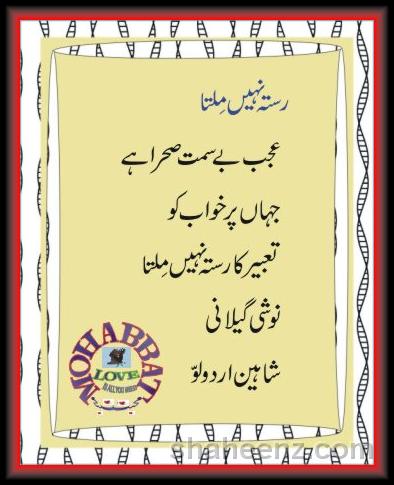 رستہ نہیں مِلتا
عجب بے سمت صحرا ہے
جہاں پر خواب کو
تعبیر کا رستہ نہیں مِلتا
نوشی گیلانی
شاہین اردو لوّ
MOHABBAT
LOVE
IS ALL YOU NEED
محبت
shaheenz.com